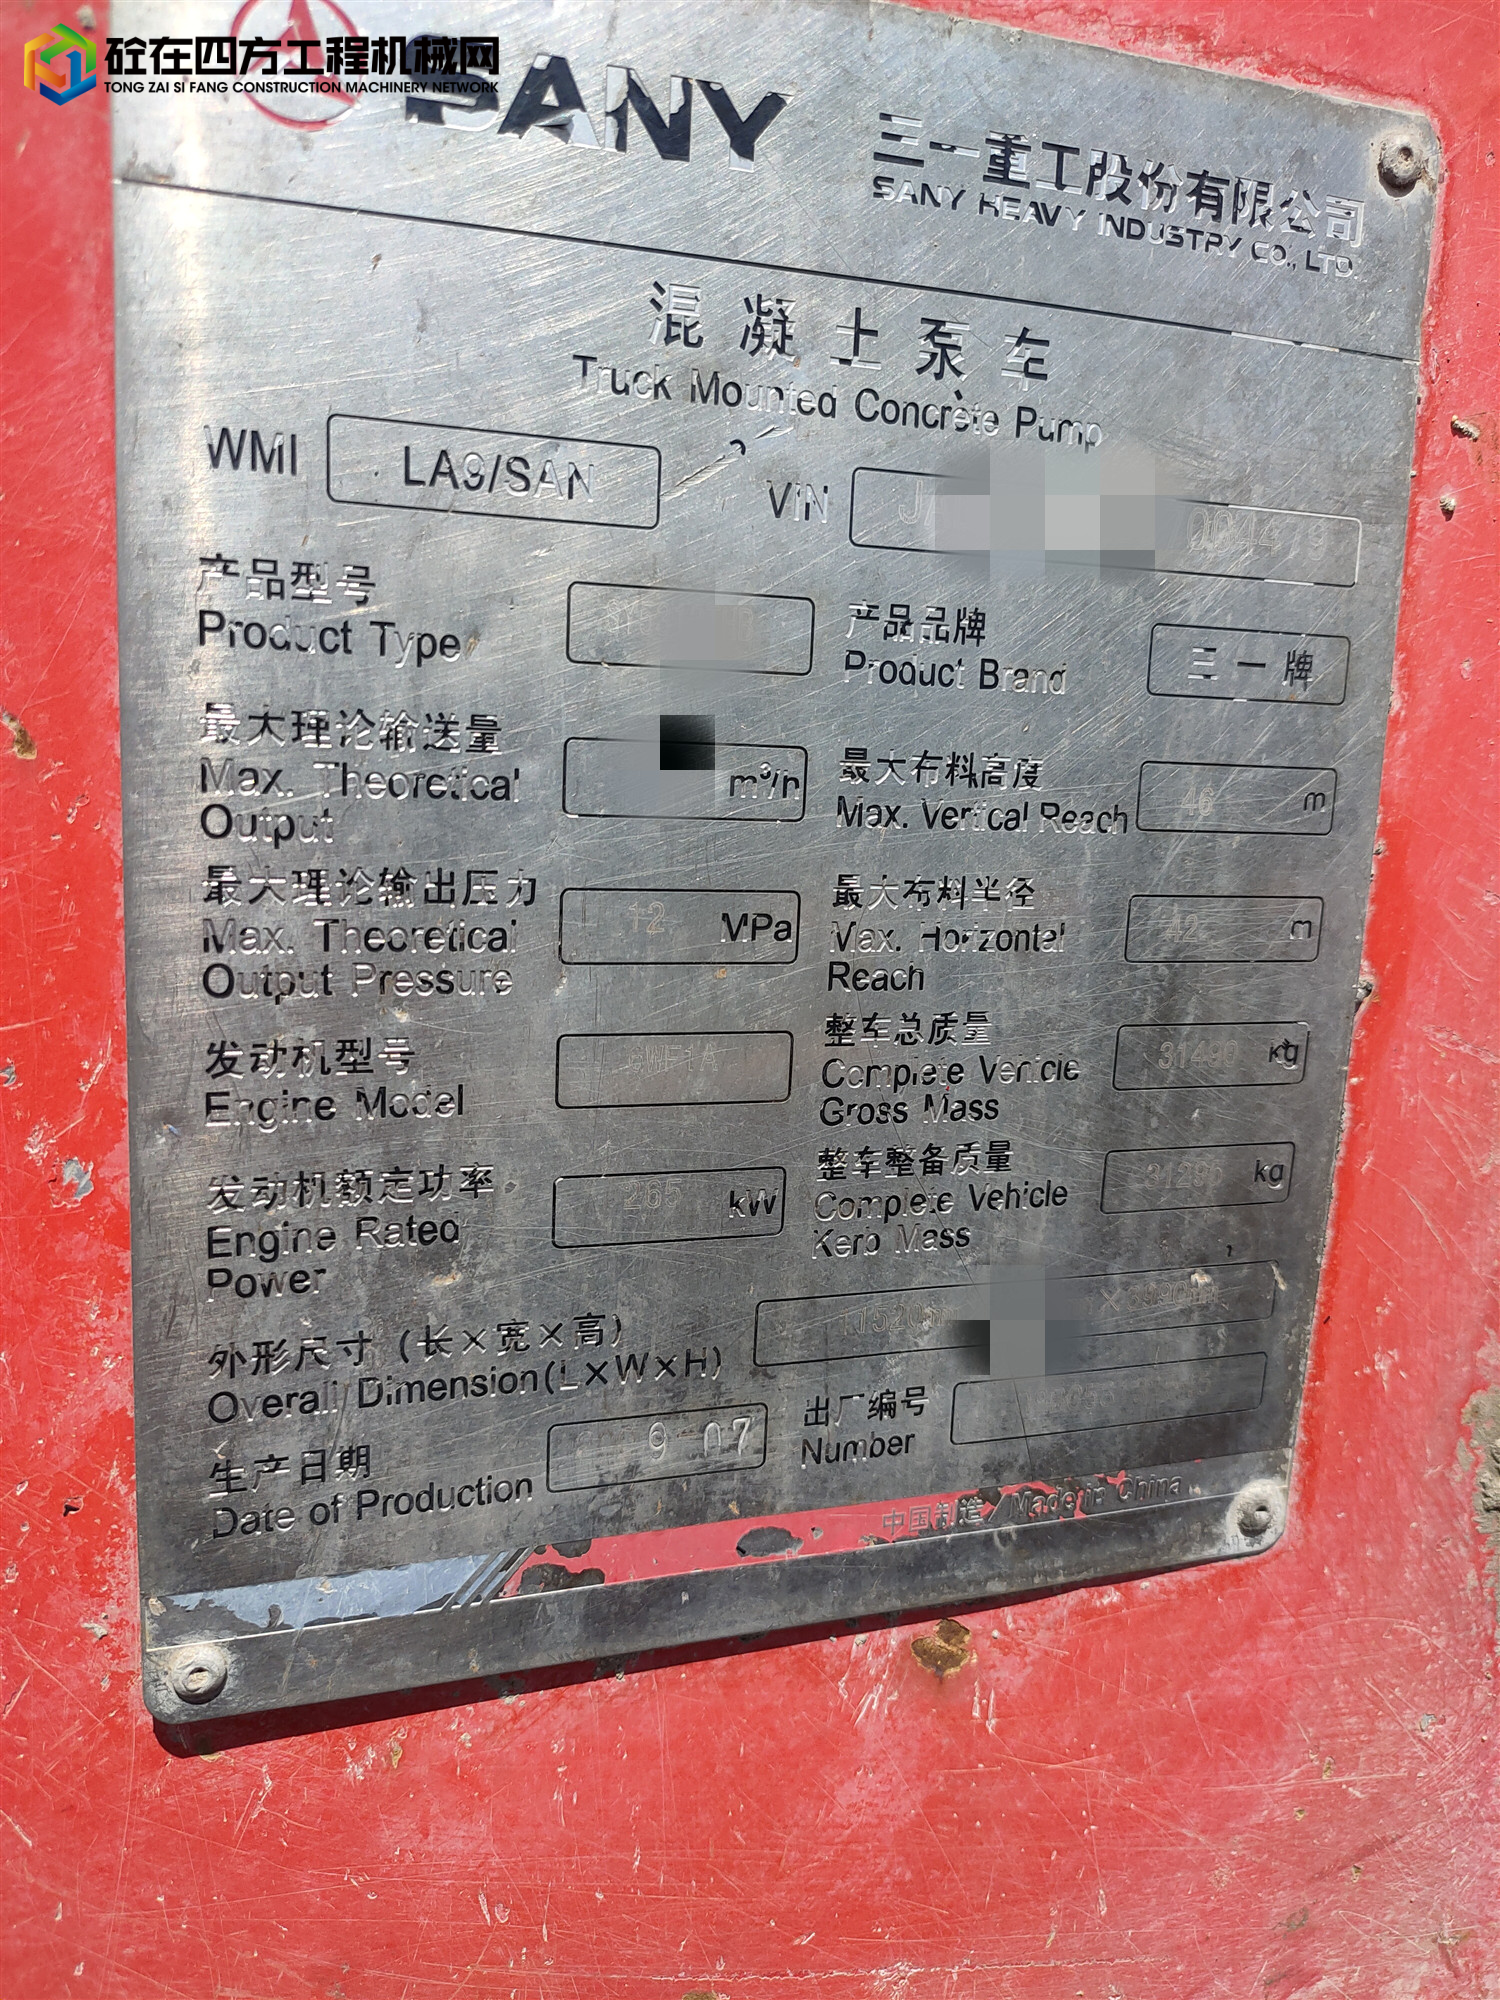 砼在四方工程机械网
TONG ZAI SI FANG CONSTRUCTION MACHINERY NETWORK
SANY
三一重工股份有限公司
SANY HEAVY INDUSTRY CO., LTD.
混凝土泵车
Truck Mounted Concrete Pump
WMI LA9/SAN
VIN
产品型号
Product Type
产品品牌
Product Brand
三一牌
最大理论输送量
Max. Theoretical
Output
m³/h
最大布料高度
Max. Vertical Reach
46 m
最大理论输出压力
Max. Theoretical
Output Pressure
12 MPa
最大布料半径
Max. Horizontal
Reach
42 m
发动机型号
Engine Model
6WF1A
整车总质量
Complete Vehicle
Gross Mass
31490 kg
发动机额定功率
Engine Rated
Power
265 kW
整车整备质量
Complete Vehicle
Kerb Mass
kg
外形尺寸(长×宽×高)
Overall Dimension(L×W×H)
生产日期
Date of Production
9 07
出厂编号
Number
中国制造/Made in China